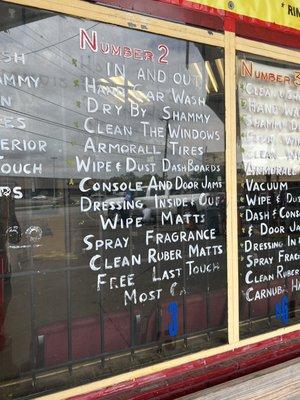 SH
AMMY
ERIOR
TOUCH
RS
NUMBER 2
IN AND OUT
HAND CAR WASH
DRY BY SHAMMY
CLEAN THE WINDOWS
ARMORALL TIRES
WIPE & DUST DASHBOARDS
CONSOLE AND DOOR JAMS
DRESSING INSIDE & OUT
WIPE MATTS
SPRAY FRAGRANCE
CLEAN RUBER MATTS
FREE LAST TOUCH
MOST
NUMBER
CLEAN
HAND WA
SHAMMY
CLEAN
ARMORALL
VACUUM
WIPE & DUS
DASH & CONS
& DOOR JA
DRESSING IN
SPRAY FRAG
CLEAN RUBE
CARNUB HA